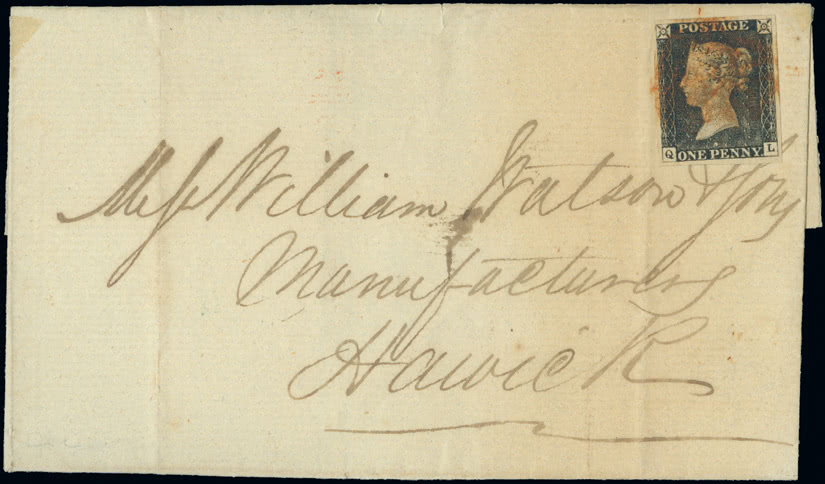 POSTAGE
Q ONE PENNY L
Mess William Watson & Sons
Manufacturers
Hawick